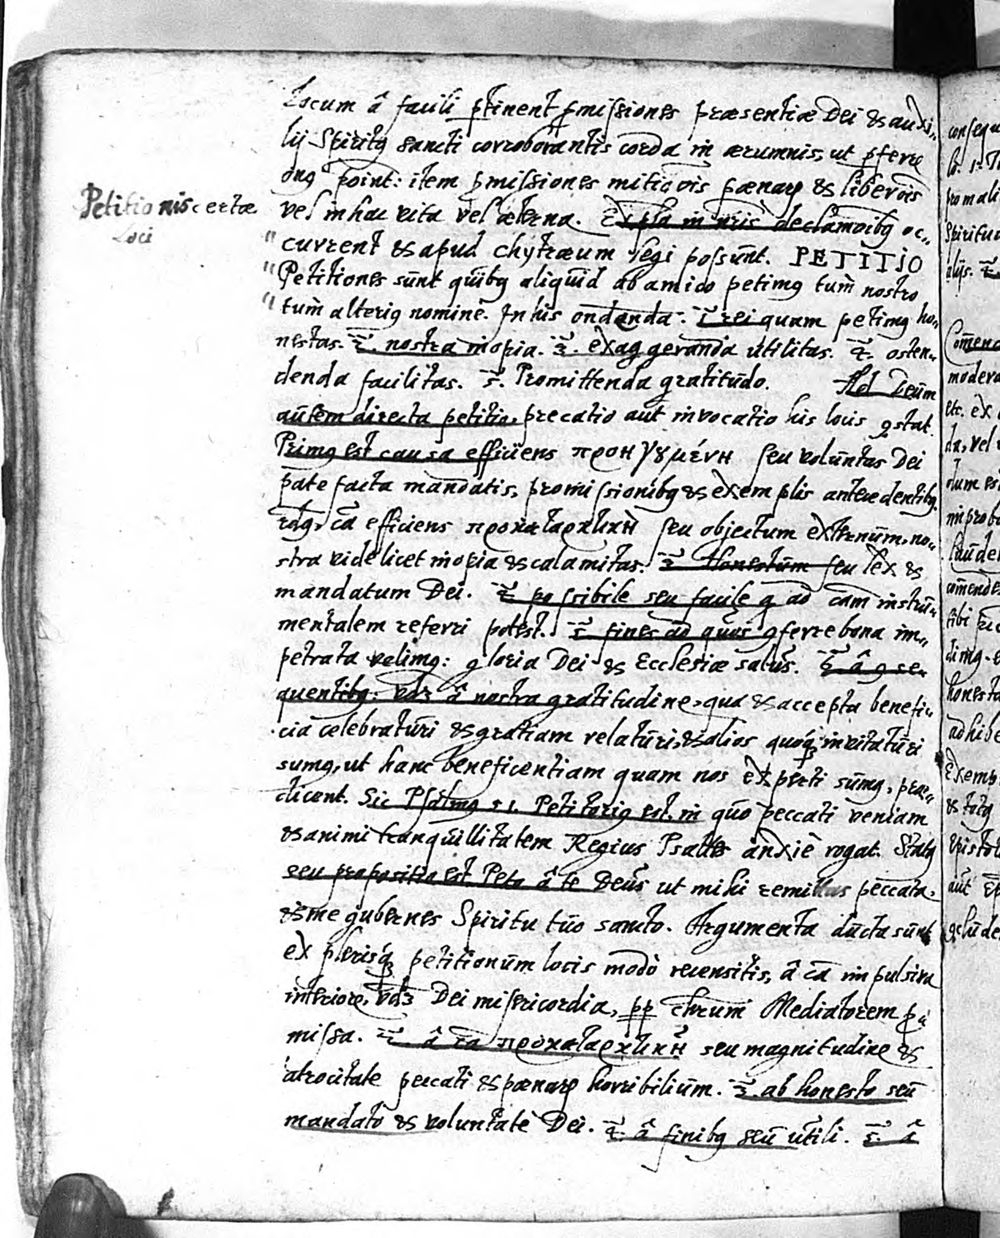 Locum â facili ptinent pmissiones præsentiæ Dei & auxi-
lij Spiritꝰ sancti corroborantis corda in ærumnis, ut pferre
onꝰ point: item pmissiones mitigōis pœnarꝝ & liberōis
Petitionis certæ
Loci
vel in hac vita vel æterna. Expla in nr̄is declamōibꝰ oc-
current & apud Chytræum legi possunt. PETITIO
Petitiones sunt quibꝰ aliquid ab amico petimꝰ tum nostro
tum alteriꝰ nomine. In his ondenda. 1. rei quam petimꝰ ho-
nestas. 2. nostra inopia. 3. exaggeranda utilitas. 4. osten-
denda facilitas. 5. Promittenda gratitudo. Ad Deum
autem directa petitio, precatio aut invocatio his locis ꝯstat.
Primꝰ est causa efficiens προηγȣμένη seu voluntas Dei
patefacta mandatis, promissionibꝰ & exemplis antecedentibꝰ.
2dꝰ, cā efficiens προκαταρκτικὴ seu objectum externum, no-
stra videlicet inopia & calamitas. 3. Honestum seu lex &
mandatum Dei. 4. possibile seu facile q ad cām instru-
mentalem referri potest. 5. fines ad quos ꝯferre bona im-
petrata velimꝰ: gloria Dei & Ecclesiæ salus. 6. â ꝯse-
quentibꝰ: vdz â nostra gratitudine, qua & accepta benefi-
cia celebraturi & gratiam relaturi, & alios quoqꝫ invitaturi
sumꝰ, ut hanc beneficentiam quam nos experti sumꝰ, præ-
dicent. Sic Psalmꝰ 51. Petitoriꝰ est, in quo peccati veniam
& animi tranquillitatem Regius Psaltes anxiè rogat. Statꝰ
seu propositio est Peto â te Deus ut mihi remittas peccata,
& me gubernes Spiritu tuo sancto. Argumenta ducta sunt
ex plerisqꝫ petitionum locis modò recensitis, â cā impulsiva
interiore, vdz Dei misericordia, pp Chrum Mediatorem p-
missa. 2. â cā προκαταρκτικῆ seu magnitudine &
atrocitate peccati & pœnarꝝ horribilium. 3. ab honesto seu
mandato & voluntate Dei. 4. â finibꝰ seu utili. 5. â